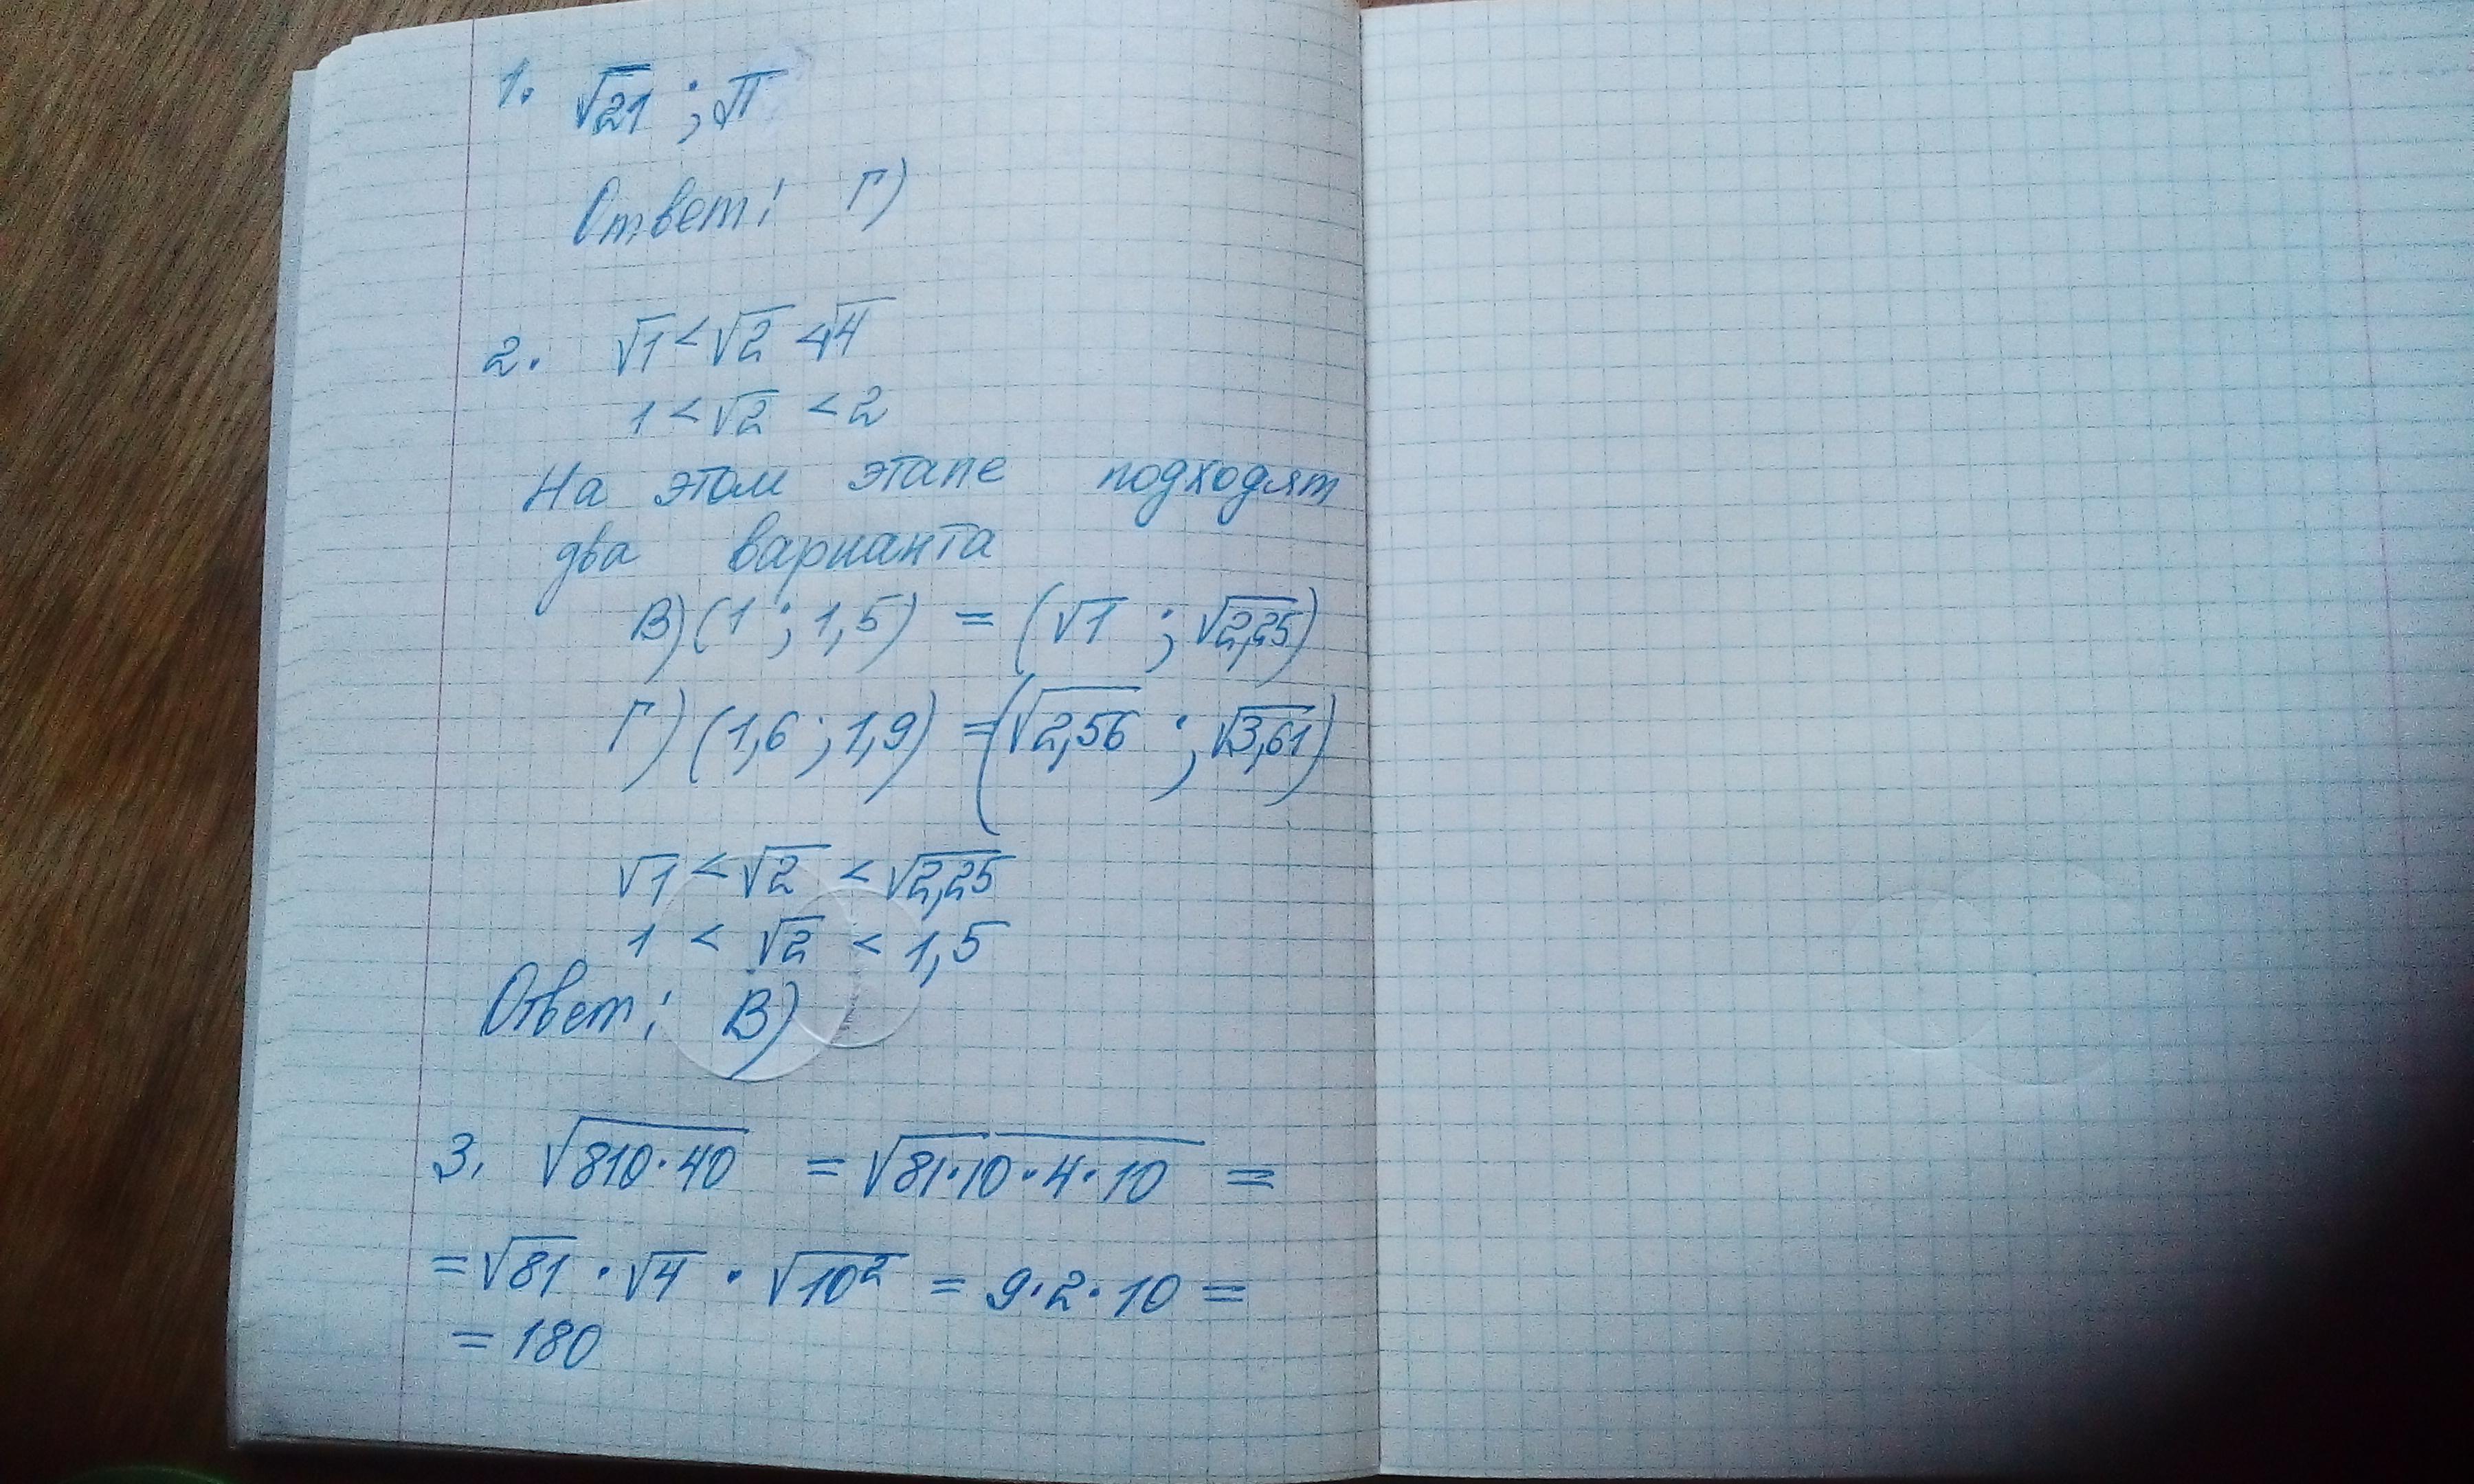 1. √21 ; √П
Ответ: Г)
2. √1 < √2 < √4
1 < √2 < 2
На этом этапе подходят
два варианта
В) (1 ; 1,5) = (√1 ; √2,25)
Г) (1,6 ; 1,9) = (√2,56 ; √3,61)
√1 < √2 < √2,25
1 < √2 < 1,5
Ответ: В)
3. √810·40 = √81·10·4·10 =
= √81 · √4 · √10² = 9·2·10 =
= 180